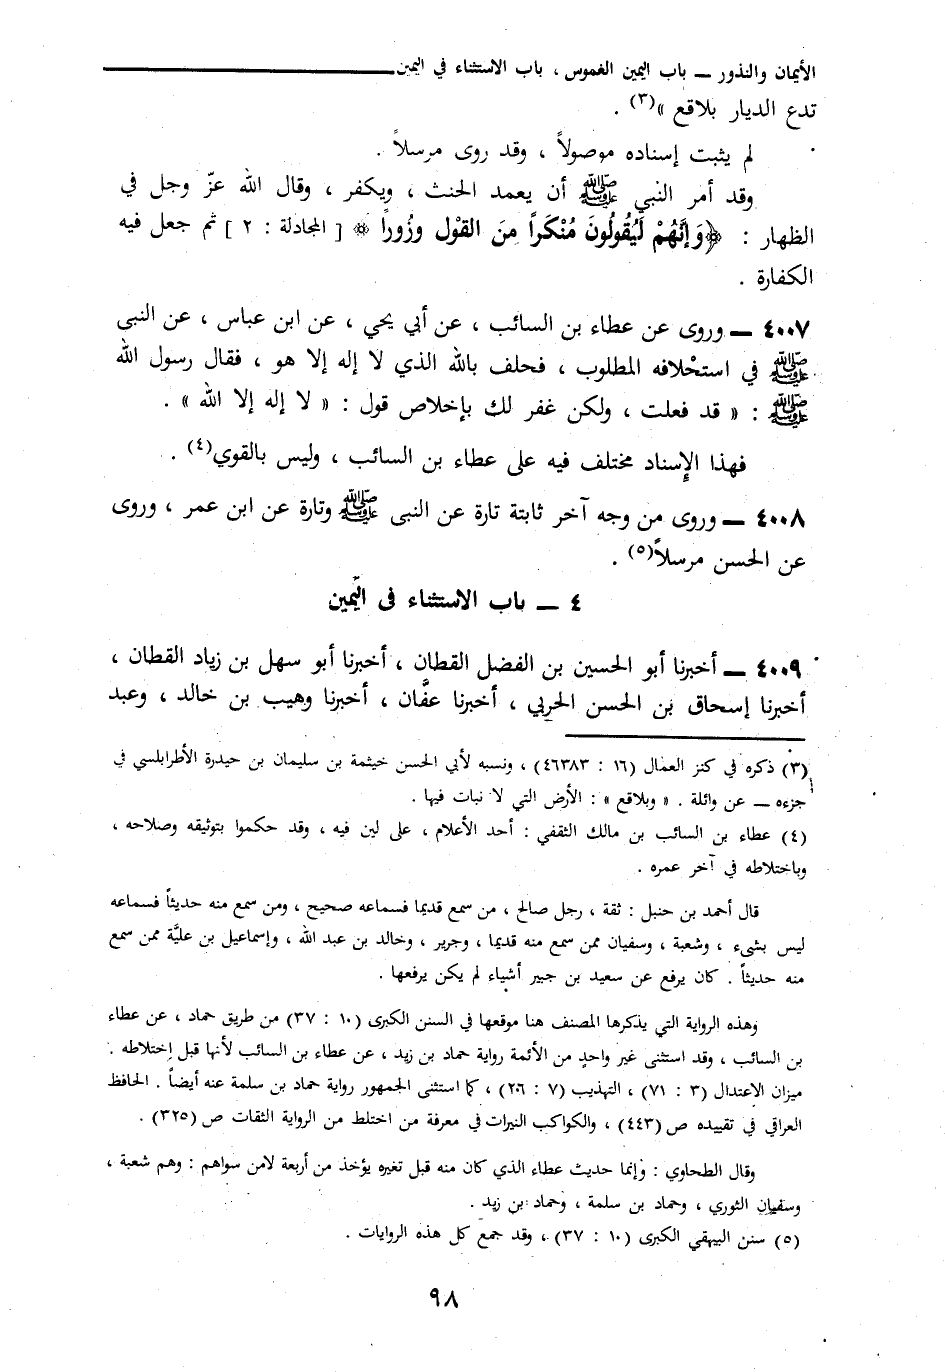 الأيمان والنذور ــ باب اليمين الغموس ، باب الاستثناء في اليمين
تدع الديار بلاقع »(٣) .
لم يثبت إسناده موصولاً ، وقد روى مرسلاً .
وقد أمر النبي ﷺ أن يعمد الحنث ، ويكفر ، وقال الله عزّ وجل في
الظهار : ﴿وَإِنَّهُمْ لَيَقُولُونَ مُنْكَراً مِنَ القَوْلِ وزُوراً ﴾ [ المجادلة : ٢ ] ثم جعل فيه
الكفارة .
٤٠٠٧ ــ وروى عن عطاء بن السائب ، عن أبي يحي ، عن ابن عباس ، عن النبى
ﷺ في استحْلافه المطلوب ، فحلف بالله الذي لا إله إلا هو ، فقال رسول الله
ﷺ : « قد فعلت ، ولكن غفر لك بإخلاص قول : « لا إله إلا الله » .
فهذا الإسناد مختلف فيه على عطاء بن السائب ، وليس بالقوي(٤) .
٤٠٠٨ ــ وروى من وجه آخر ثابتة تارة عن النبى ﷺ وتارة عن ابن عمر ، وروى
عن الحسن مرسلاً(٥) .
٤ ــ باب الاستثناء فى اليمين
٤٠٠٩ ــ أخبرنا أبو الحسين بن الفضل القطان ، أخبرنا أبو سهل بن زياد القطان ،
أخبرنا إسحاق بن الحسن الحربي ، أخبرنا عفَّان ، أخبرنا وهيب بن خالد ، وعبد
(٣) ذكره في كنز العمال (١٦ : ٤٦٣٨٣) ، ونسبه لأبي الحسن خيثمة بن سليمان بن حيدرة الأطرابلسي في
جزءه ــ عن واثلة . « وبلاقع » : الأرض التي لا نبات فيها .
(٤) عطاء بن السائب بن مالك الثقفي : أحد الأعلام ، على لين فيه ، وقد حكموا بتوثيقه وصلاحه ،
وباختلاطه في آخر عمره .
قال أحمد بن حنبل : ثقة ، رجل صالح ، من سمع قديما فسماعه صحيح ، ومن سمع منه حديثاً فسماعه
ليس بشىء ، وشعبة ، وسفيان ممن سمع منه قديما ، وجرير ، وخالد بن عبد الله ، وإسماعيل بن عليَّة ممن سمع
منه حديثاً . كان يرفع عن سعيد بن جبير أشياء لم يكن يرفعها .
وهذه الرواية التي يذكرها المصنف هنا موقعها في السنن الكبرى (١٠ : ٣٧) من طريق حماد ، عن عطاء
بن السائب ، وقد استثنى غير واحدٍ من الأئمة رواية حماد بن زيد ، عن عطاء بن السائب لأنها قبل إختلاطه .
ميزان الاعتدال (٣ : ٧١) ، التهذيب (٧ : ٢٠٦) ، كما استثنى الجمهور رواية حماد بن سلمة عنه أيضاً . الحافظ
العراقي في تقييده ص (٤٤٣) ، والكواكب النيرات في معرفة من اختلط من الرواية الثقات ص (٣٢٥) .
وقال الطحاوي : وإنما حديث عطاء الذي كان منه قبل تغيره يؤخذ من أربعة لامن سواهم : وهم شعبة ،
وسفيان الثوري ، وحماد بن سلمة ، وحماد بن زيد .
(٥) سنن البيهقي الكبرى (١٠ : ٣٧) ، وقد جمع كل هذه الروايات .
٩٨